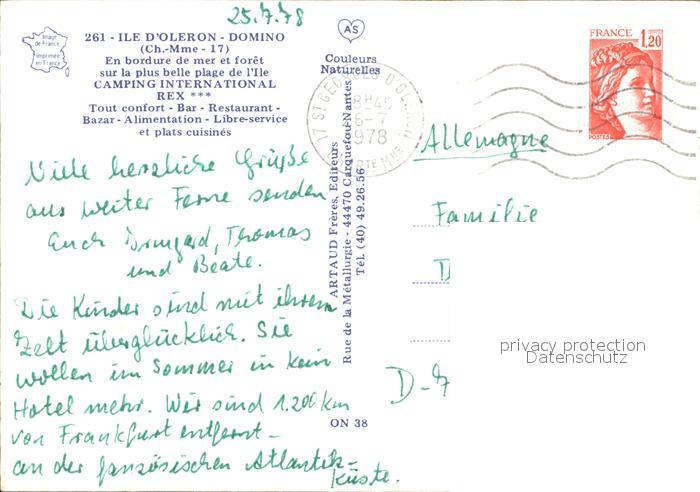 25.7.78
Image
de France
Imprimée
en France
261 - ILE D'OLERON - DOMINO
(Ch.-Mme - 17)
En bordure de mer et forêt
sur la plus belle plage de l'Ile
CAMPING INTERNATIONAL
REX ***
Tout confort - Bar - Restaurant -
Bazar - Alimentation - Libre-service
et plats cuisinés
Viele herzliche Grüße
aus weiter Ferne senden
Euch Irmgard, Thomas
und Beate.
Die Kinder sind mit ihrem
Zelt überglücklich. Sie
wollen im Sommer in kein
Hotel mehr. Wir sind 1.200 km
von Frankfurt entfernt -
an der französischen Atlantik-
küste.
AS
Couleurs
Naturelles
ARTAUD Frères, Editeurs
Rue de la Métallurgie - 44470 Carquefou-Nantes
Tél. (40) 49.26.56
ON 38
17 ST GEORGES D'OLERON
8H45
6-7
1978
RTE MME
FRANCE
1,20
POSTES
Allemagne
Familie
D-
privacy protection
Datenschutz